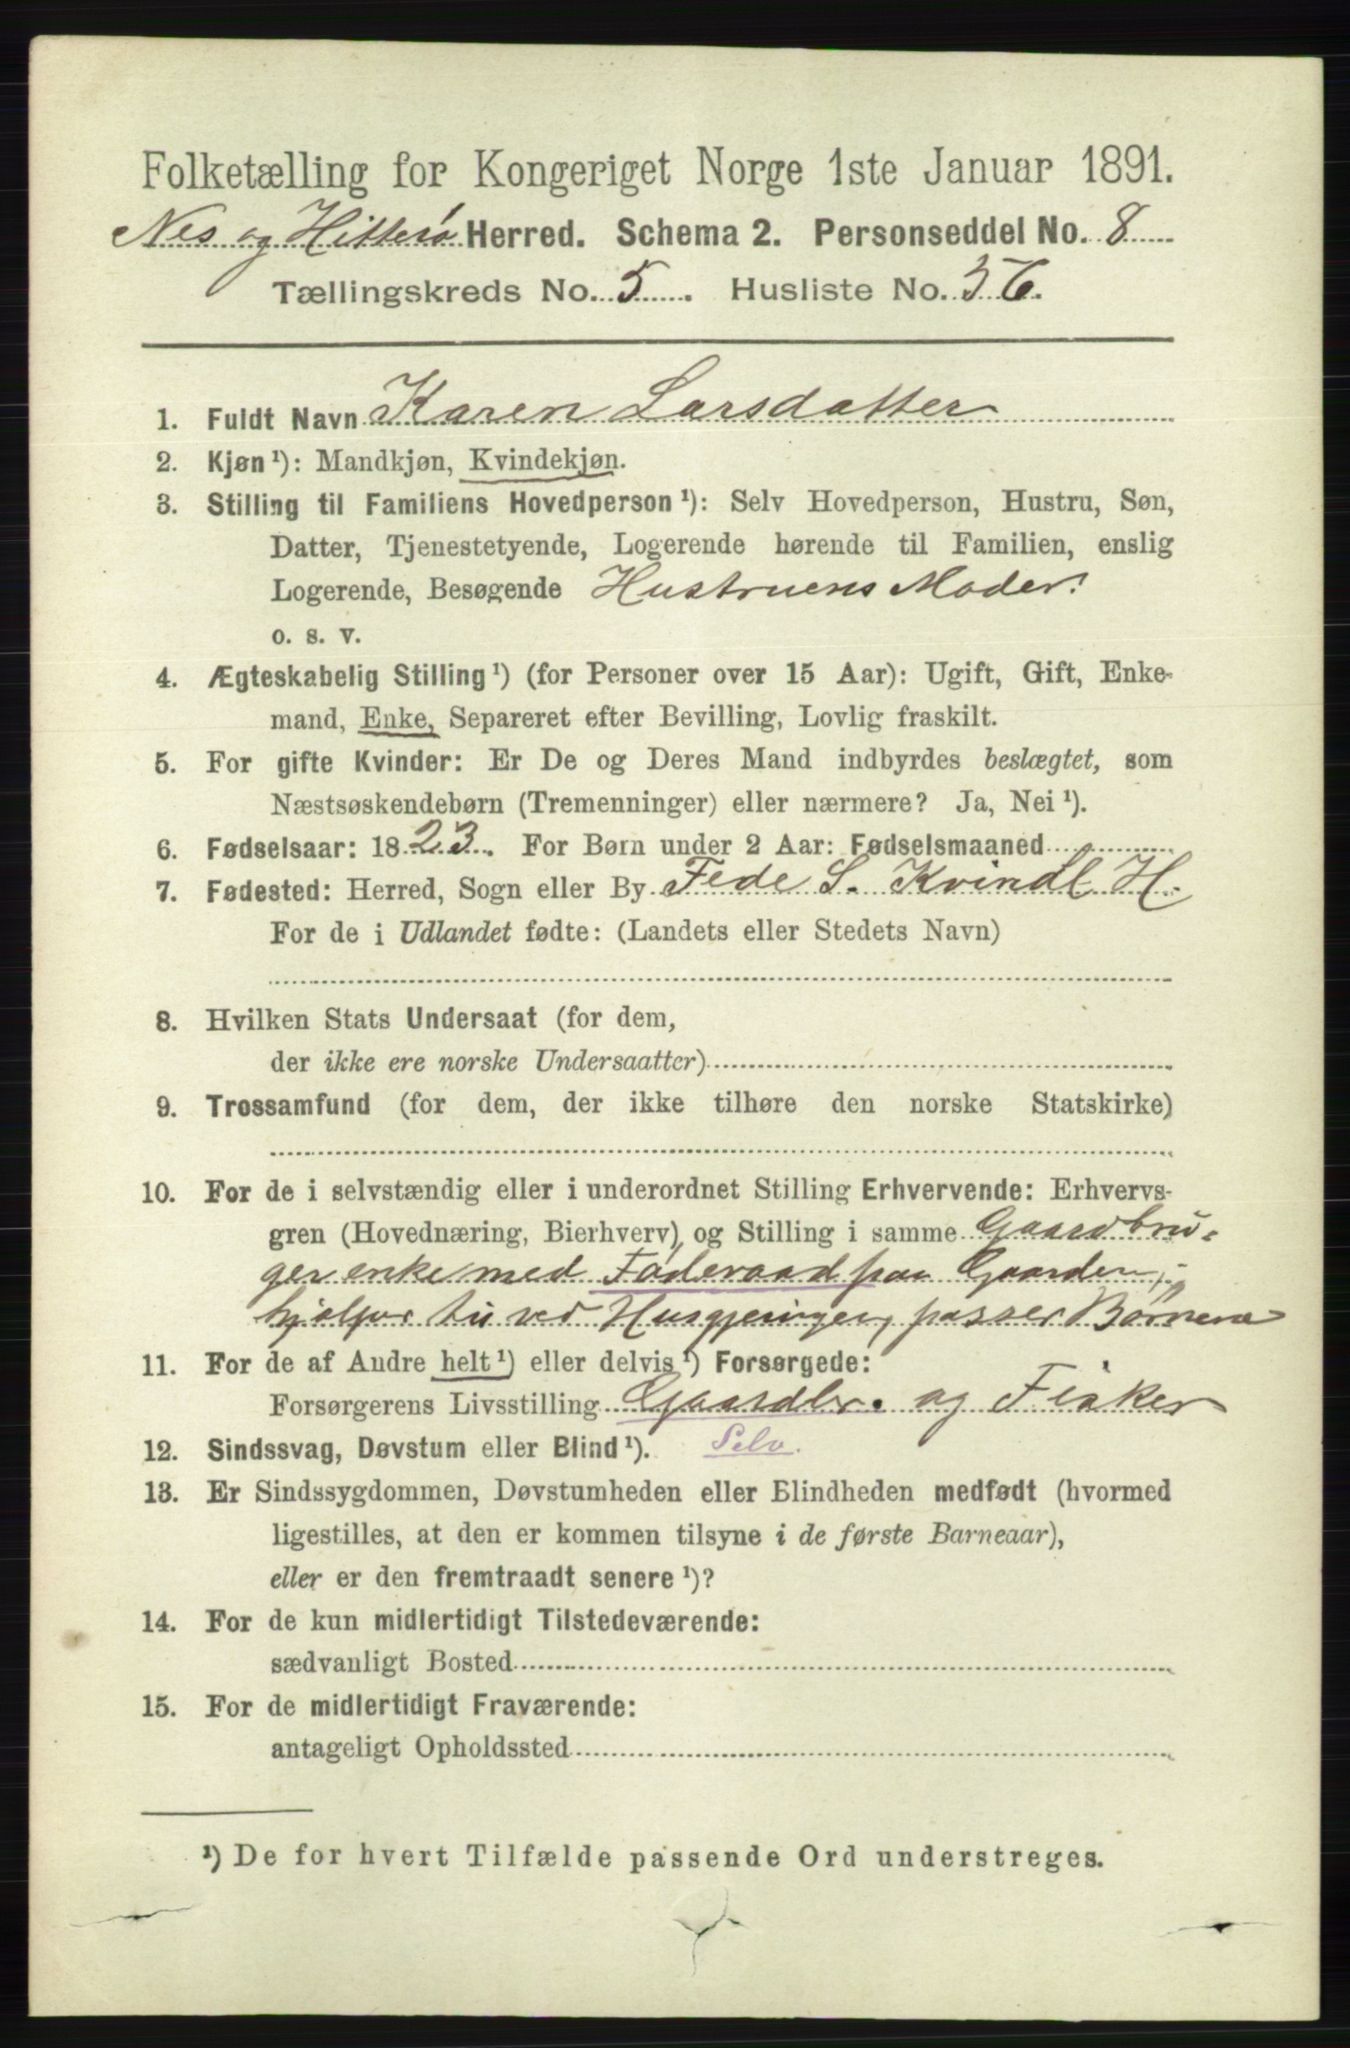 Folketælling for Kongeriget Norge 1ste Januar 1891.
Nes og Hitterø Herred. Schema 2. Personseddel No. 8
Tællingskreds No. 5. Husliste No. 36.
1. Fuldt Navn Karen Larsdatter
2. Kjøn ¹): Mandkjøn, Kvindekjøn.
3. Stilling til Familiens Hovedperson ¹): Selv Hovedperson, Hustru, Søn,
Datter, Tjenestetyende, Logerende hørende til Familien, enslig
Logerende, Besøgende Hustruens Moder.
o. s. v.
4. Ægteskabelig Stilling ¹) (for Personer over 15 Aar): Ugift, Gift, Enke-
mand, Enke, Separeret efter Bevilling, Lovlig fraskilt.
5. For gifte Kvinder: Er De og Deres Mand indbyrdes beslægtet, som
Næstsøskendebørn (Tremenninger) eller nærmere? Ja, Nei ¹).
6. Fødselsaar: 1823. For Børn under 2 Aar: Fødselsmaaned
7. Fødested: Herred, Sogn eller By Fede S. Kvindl. H.
For de i Udlandet fødte: (Landets eller Stedets Navn)
8. Hvilken Stats Undersaat (for dem,
der ikke ere norske Undersaatter)
9. Trossamfund (for dem, der ikke tilhøre den norske Statskirke)
10. For de i selvstændig eller i underordnet Stilling Erhvervende: Erhvervs-
gren (Hovednæring, Bierhverv) og Stilling i samme Gaardbru-
gerenke med Føderaad paa Gaarden,
hjelper til ved Husgjerningen, passer Børnene
11. For de af Andre helt ¹) eller delvis ¹) Forsørgede:
Forsørgerens Livsstilling Gaardbr. og Fisker
12. Sindssvag, Døvstum eller Blind ¹). Selv.
13. Er Sindssygdommen, Døvstumheden eller Blindheden medfødt (hvormed
ligestilles, at den er kommen tilsyne i de første Barneaar),
eller er den fremtraadt senere ¹)?
14. For de kun midlertidigt Tilstedeværende:
sædvanligt Bosted
15. For de midlertidigt Fraværende:
antageligt Opholdssted
¹) De for hvert Tilfælde passende Ord understreges.